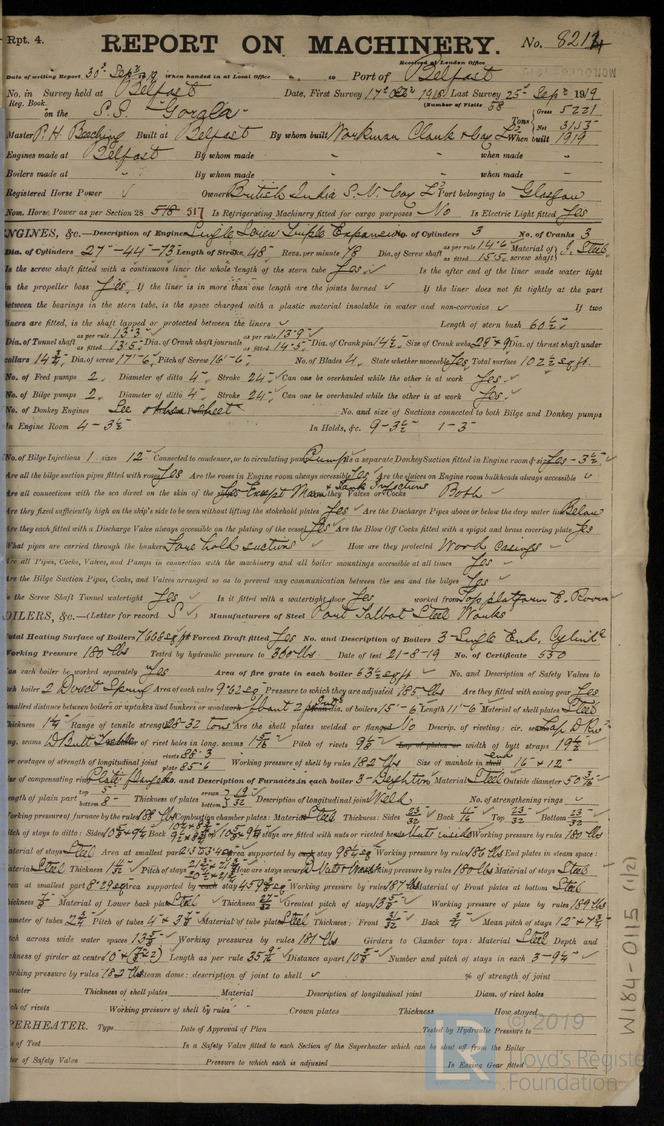 Rpt. 4.
REPORT ON MACHINERY. No. 8214
Received at London Office
Date of writing Report 30th Sept 1919 When handed in at Local Office to Port of Belfast
No. in Survey held at Belfast Date, First Survey 17th Oct 1918 Last Survey 25th Sept 1919
Reg. Book. (Number of Visits 58
on the S.S. "Gorgla" Tons Gross 5221 Net 3153
Master P. H. Beeching Built at Belfast By whom built Workman Clark & Coy Ld When built 1919
Engines made at Belfast By whom made " when made "
Boilers made at " By whom made " when made "
Registered Horse Power Owners British India S. N. Coy Ld Port belonging to Glasgow
Nom. Horse Power as per Section 28 518 517 Is Refrigerating Machinery fitted for cargo purposes No Is Electric Light fitted Yes
ENGINES, &c.—Description of Engines Single Screw Triple Expansion No. of Cylinders 3 No. of Cranks 3
Dia. of Cylinders 27"-44"-73" Length of Stroke 48" Revs. per minute 78 Dia. of Screw shaft as per rule 14.6 as fitted 15.5 Material of screw shaft I. Steel
Is the screw shaft fitted with a continuous liner the whole length of the stern tube Yes Is the after end of the liner made water tight
in the propeller boss Yes If the liner is in more than one length are the joints burned If the liner does not fit tightly at the part
between the bearings in the stern tube, is the space charged with a plastic material insoluble in water and non-corrosive If two
liners are fitted, is the shaft lapped or protected between the liners Length of stern bush 60½"
Dia. of Tunnel shaft as per rule 13.3 as fitted 13.5 Dia. of Crank shaft journals as per rule 13.9 as fitted 14.5 Dia. of Crank pin 14½" Size of Crank webs 29" x 9" Dia. of thrust shaft under
collars 14½" Dia. of screw 17'-6" Pitch of Screw 16'-6" No. of Blades 4 State whether moveable Yes Total surface 102½ sq ft.
No. of Feed pumps 2 Diameter of ditto 4" Stroke 24" Can one be overhauled while the other is at work Yes
No. of Bilge pumps 2 Diameter of ditto 4" Stroke 24" Can one be overhauled while the other is at work Yes
No. of Donkey Engines See other sheet No. and size of Suctions connected to both Bilge and Donkey pumps
In Engine Room 4-3½" In Holds, &c. 9-3½" 1-3"
No. of Bilge Injections 1 sizes 12" Connected to condenser, or to circulating pump Pump Is a separate Donkey Suction fitted in Engine room & size Yes-3½"
Are all the bilge suction pipes fitted with roses Yes Are the roses in Engine room always accessible Yes Are the sluices on Engine room bulkheads always accessible
Are all connections with the sea direct on the skin of the ship Yes Except Main & Tank Injections Are they Valves or Cocks Both
Are they fixed sufficiently high on the ship's side to be seen without lifting the stokehold plates Yes Are the Discharge Pipes above or below the deep water line Below
Are they each fitted with a Discharge Valve always accessible on the plating of the vessel Yes Are the Blow Off Cocks fitted with a spigot and brass covering plate Yes
What pipes are carried through the bunkers Fore hold suctions How are they protected Wood Casings
Are all Pipes, Cocks, Valves, and Pumps in connection with the machinery and all boiler mountings accessible at all times Yes
Are the Bilge Suction Pipes, Cocks, and Valves arranged so as to prevent any communication between the sea and the bilges Yes
Is the Screw Shaft Tunnel watertight Yes Is it fitted with a watertight door Yes worked from Top platform E. Room
BOILERS, &c.—(Letter for record S) Manufacturers of Steel Port Talbot Steel Works
Total Heating Surface of Boilers 7668 sq ft Forced Draft fitted Yes No. and Description of Boilers 3 Single End, Cylindl
Working Pressure 180 lbs Tested by hydraulic pressure to 360 lbs Date of test 21-8-19 No. of Certificate 530
Can each boiler be worked separately Yes Area of fire grate in each boiler 63½ sq ft No. and Description of Safety Valves to
each boiler 2 Direct Spring Area of each valve 9.62 sq Pressure to which they are adjusted 185 lbs Are they fitted with easing gear Yes
Smallest distance between boilers or uptakes and bunkers or woodwork about 2 ft Dia. of boilers 15'-6" Length 11'-6" Material of shell plates Steel
Thickness Range of tensile strength 28-32 tons Are the shell plates welded or flanged No Descrip. of riveting: cir. seams Lap D Riv
long. seams D Butt Treble Dia. of rivet holes in long. seams Pitch of rivets 9½ Lap of plates or width of butt straps 19½
Percentages of strength of longitudinal joint rivets 88.3 plate 85.6 Working pressure of shell by rules 182 lbs Size of manhole in end 16" x 12"
Size of compensating ring Plate flanged No. and Description of Furnaces in each boiler 3-Deighton Material Steel Outside diameter 50
Length of plain part top bottom Thickness of plates crown bottom Description of longitudinal joint Weld No. of strengthening rings
Working pressure of furnace by the rules 188 lbs Combustion chamber plates: Material Steel Thickness: Sides 23/32 Back 11/16 Top 23/32 Bottom 23/32
Pitch of stays to ditto: Sides Back Top If stays are fitted with nuts or riveted heads Nuts inside Working pressure by rules 180 lbs
Material of stays Steel Area at smallest part Area supported by each stay Working pressure by rules 186 lbs End plates in steam space:
Material Steel Thickness Pitch of stays How are stays secured Working pressure by rules 180 lbs Material of stays Steel
Area at smallest part 8.29 sq Area supported by each stay 459 sq Working pressure by rules 187 lbs Material of Front plates at bottom Steel
Thickness Material of Lower back plate Steel Thickness Greatest pitch of stays Working pressure of plate by rules 189 lbs
Diameter of tubes Pitch of tubes Material of tube plates Steel Thickness: Front Back ¾ Mean pitch of stays
Pitch across wide water spaces Working pressures by rules 181 lbs Girders to Chamber tops: Material Steel Depth and
thickness of girder at centre Length as per rule Distance apart Number and pitch of stays in each
Working pressure by rules 182 lbs Steam dome: description of joint to shell % of strength of joint
Diameter Thickness of shell plates Material Description of longitudinal joint Diam. of rivet holes
Pitch of rivets Working pressure of shell by rules Crown plates Thickness How stayed
SUPERHEATER. Type Date of Approval of Plan Tested by Hydraulic Pressure to
Date of Test Is a Safety Valve fitted to each Section of the Superheater which can be shut off from the Boiler
Diameter of Safety Valve Pressure to which each is adjusted Is Easing Gear fitted
W184-0115 (1/2)
© 2019
Lloyd's Register
Foundation
LR